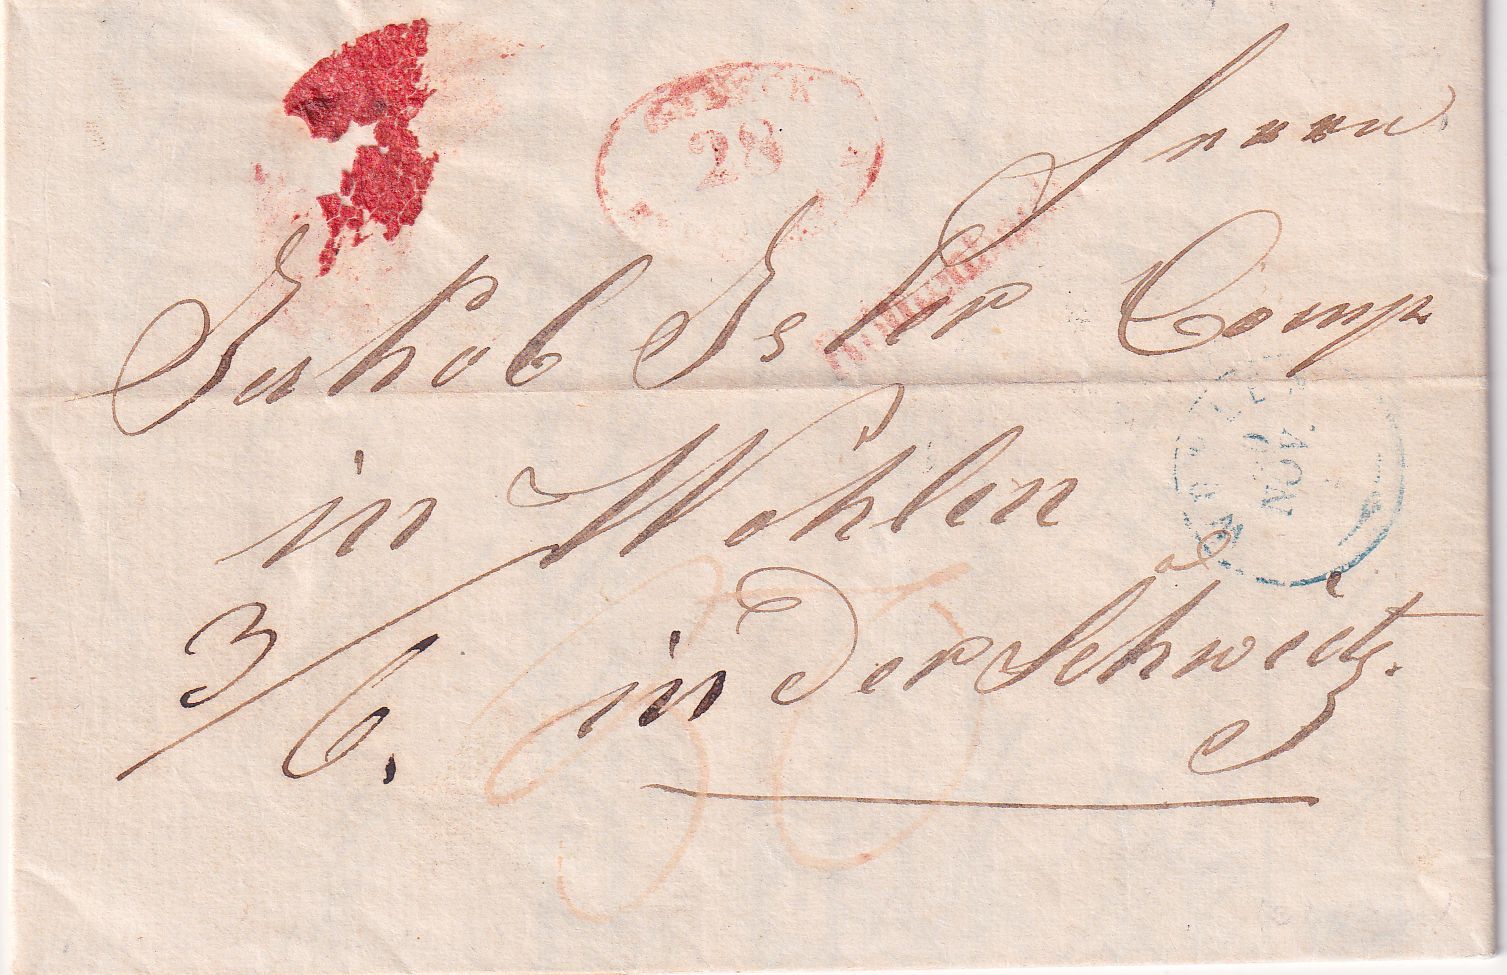 28
Herren
Jakob Isler Comp
in Wohlen
in der Schweitz.
3/6.
NOV
30